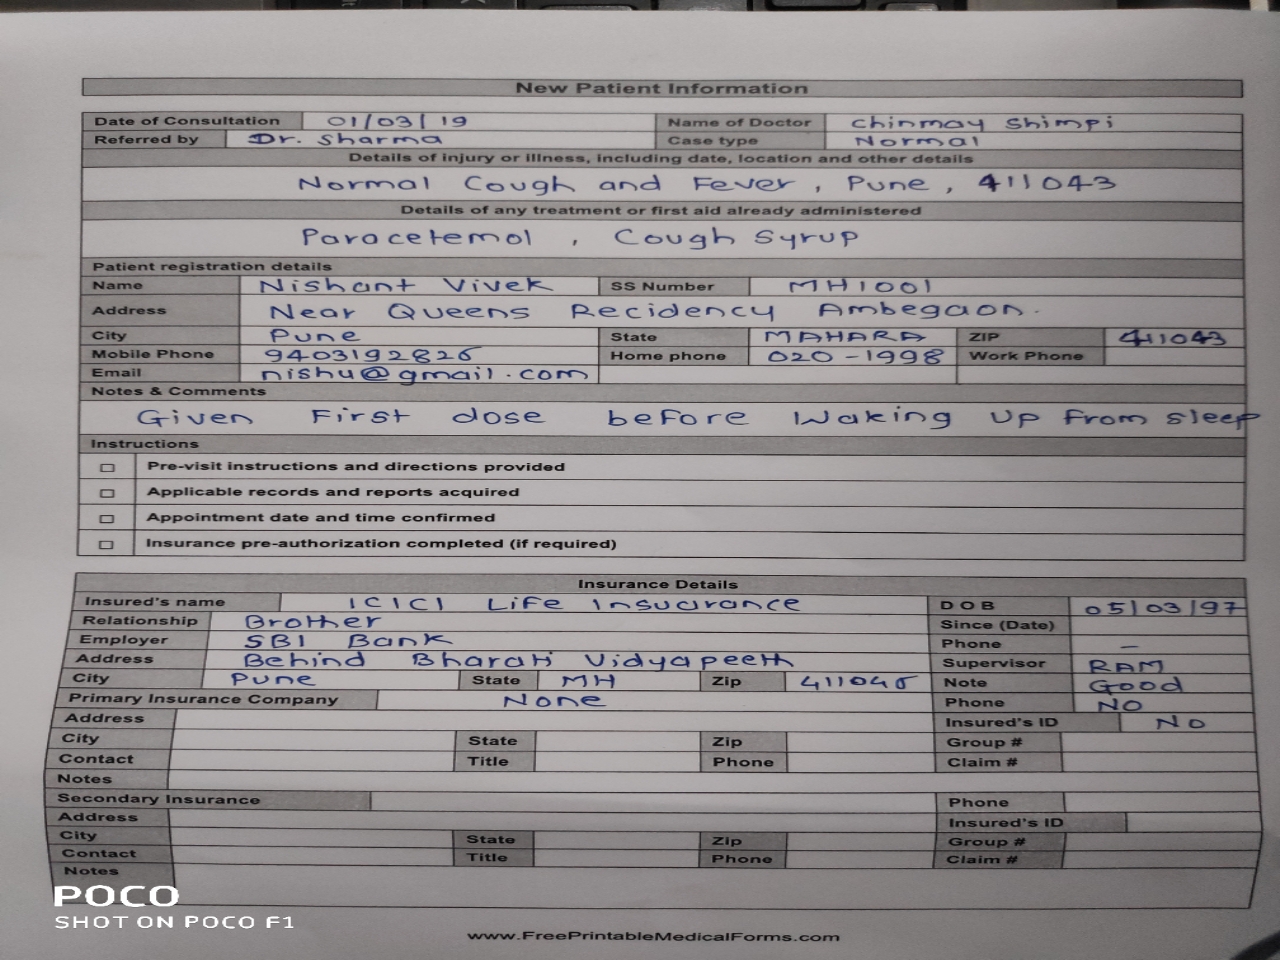 New Patient Information
Date of Consultation 01/03/19 Name of Doctor Chinmay Shimpi
Referred by Dr. Sharma Case type Normal
Details of injury or illness, including date, location and other details
Normal Cough and Fever, Pune, 411043
Details of any treatment or first aid already administered
Paracetemol, Cough Syrup
Patient registration details
Name Nishant Vivek SS Number MH1001
Address Near Queens Recidency Ambegaon.
City Pune State MAHARA ZIP 411043
Mobile Phone 9403192826 Home phone 020-1998 Work Phone
Email nishu@gmail.com
Notes & Comments
Given First dose before Waking Up from sleep
Instructions
Pre-visit instructions and directions provided
Applicable records and reports acquired
Appointment date and time confirmed
Insurance pre-authorization completed (if required)
Insurance Details
Insured's name ICICI Life Insucrance DOB 05/03/97
Relationship Brother Since (Date)
Employer SBI Bank Phone –
Address Behind Bharati Vidyapeeth Supervisor RAM
City Pune State MH Zip 411046 Note Good
Primary Insurance Company None Phone NO
Address Insured's ID NO
City State Zip Group #
Contact Title Phone Claim #
Notes
Secondary Insurance Phone
Address Insured's ID
City State Zip Group #
Contact Title Phone Claim #
Notes
POCO
SHOT ON POCO F1
www.FreePrintableMedicalForms.com